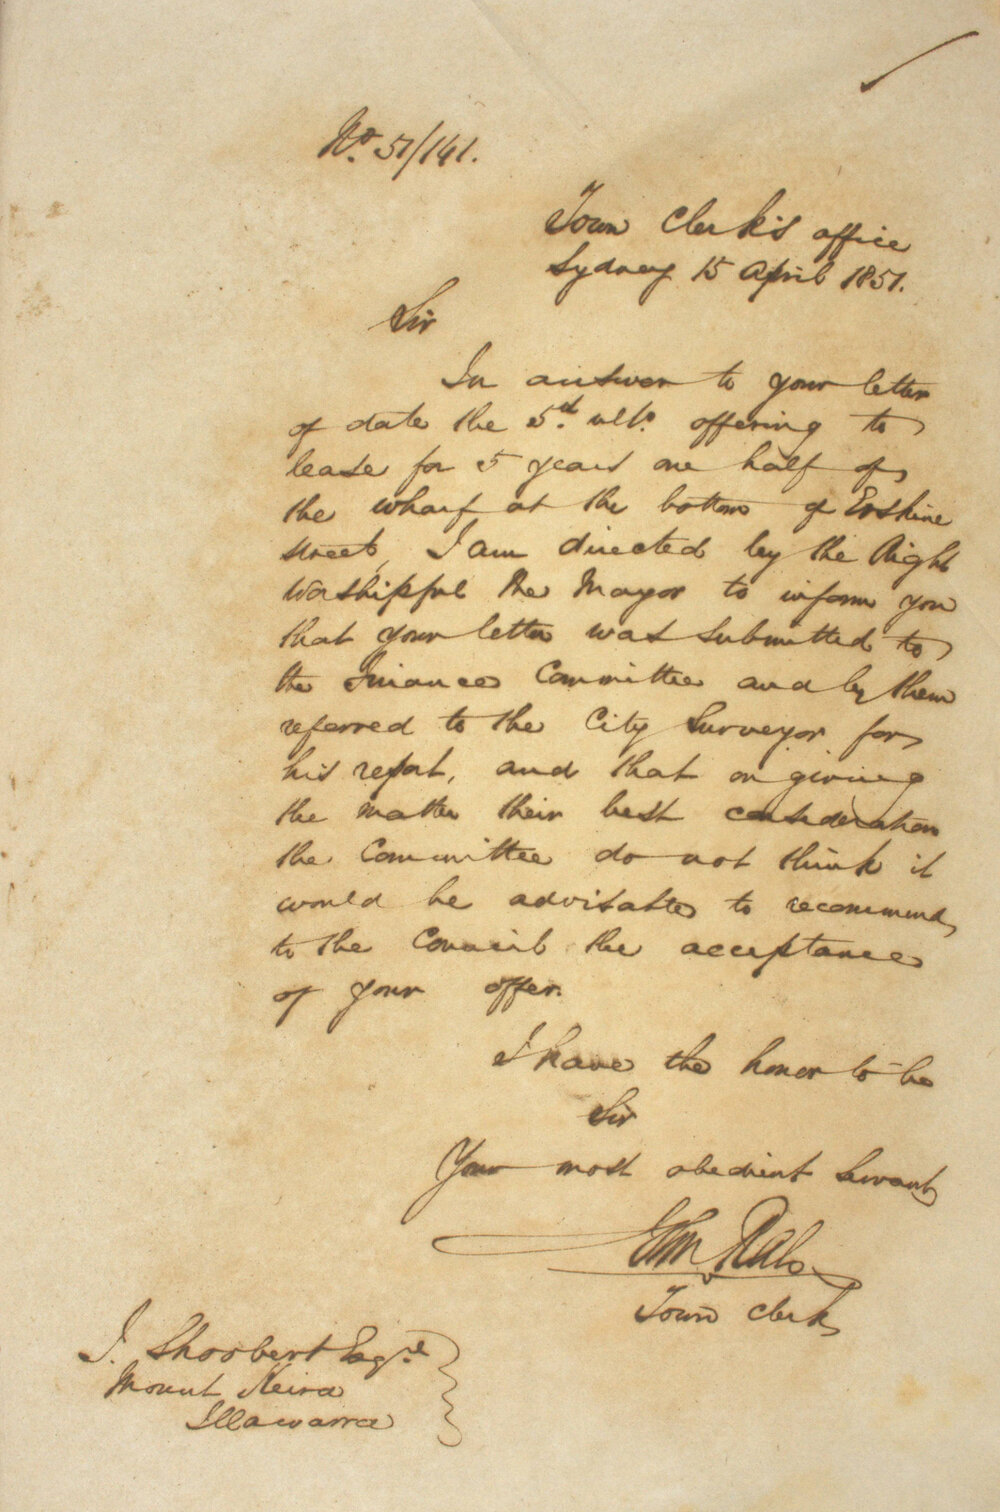 No. 51/141.
Town Clerk's office
Sydney 15 April 1851.
Sir
In answer to your letter
of date the 5th ulto. offering to
lease for 5 years one half of
the wharf at the bottom of Erskine
street, I am directed by the Right
Worshipful the Mayor to inform you
that your letter was submitted to
the Finance Committee and by them
referred to the City Surveyor for
his report, and that on giving
the matter their best consideration
the Committee do not think it
would be advisable to recommend
to the Council the acceptance
of your offer.
I have the honor to be
Sir
Your most obedient Servant
Town Clerk
J. Shoobert Esqre
Mount Keira
Illawarra